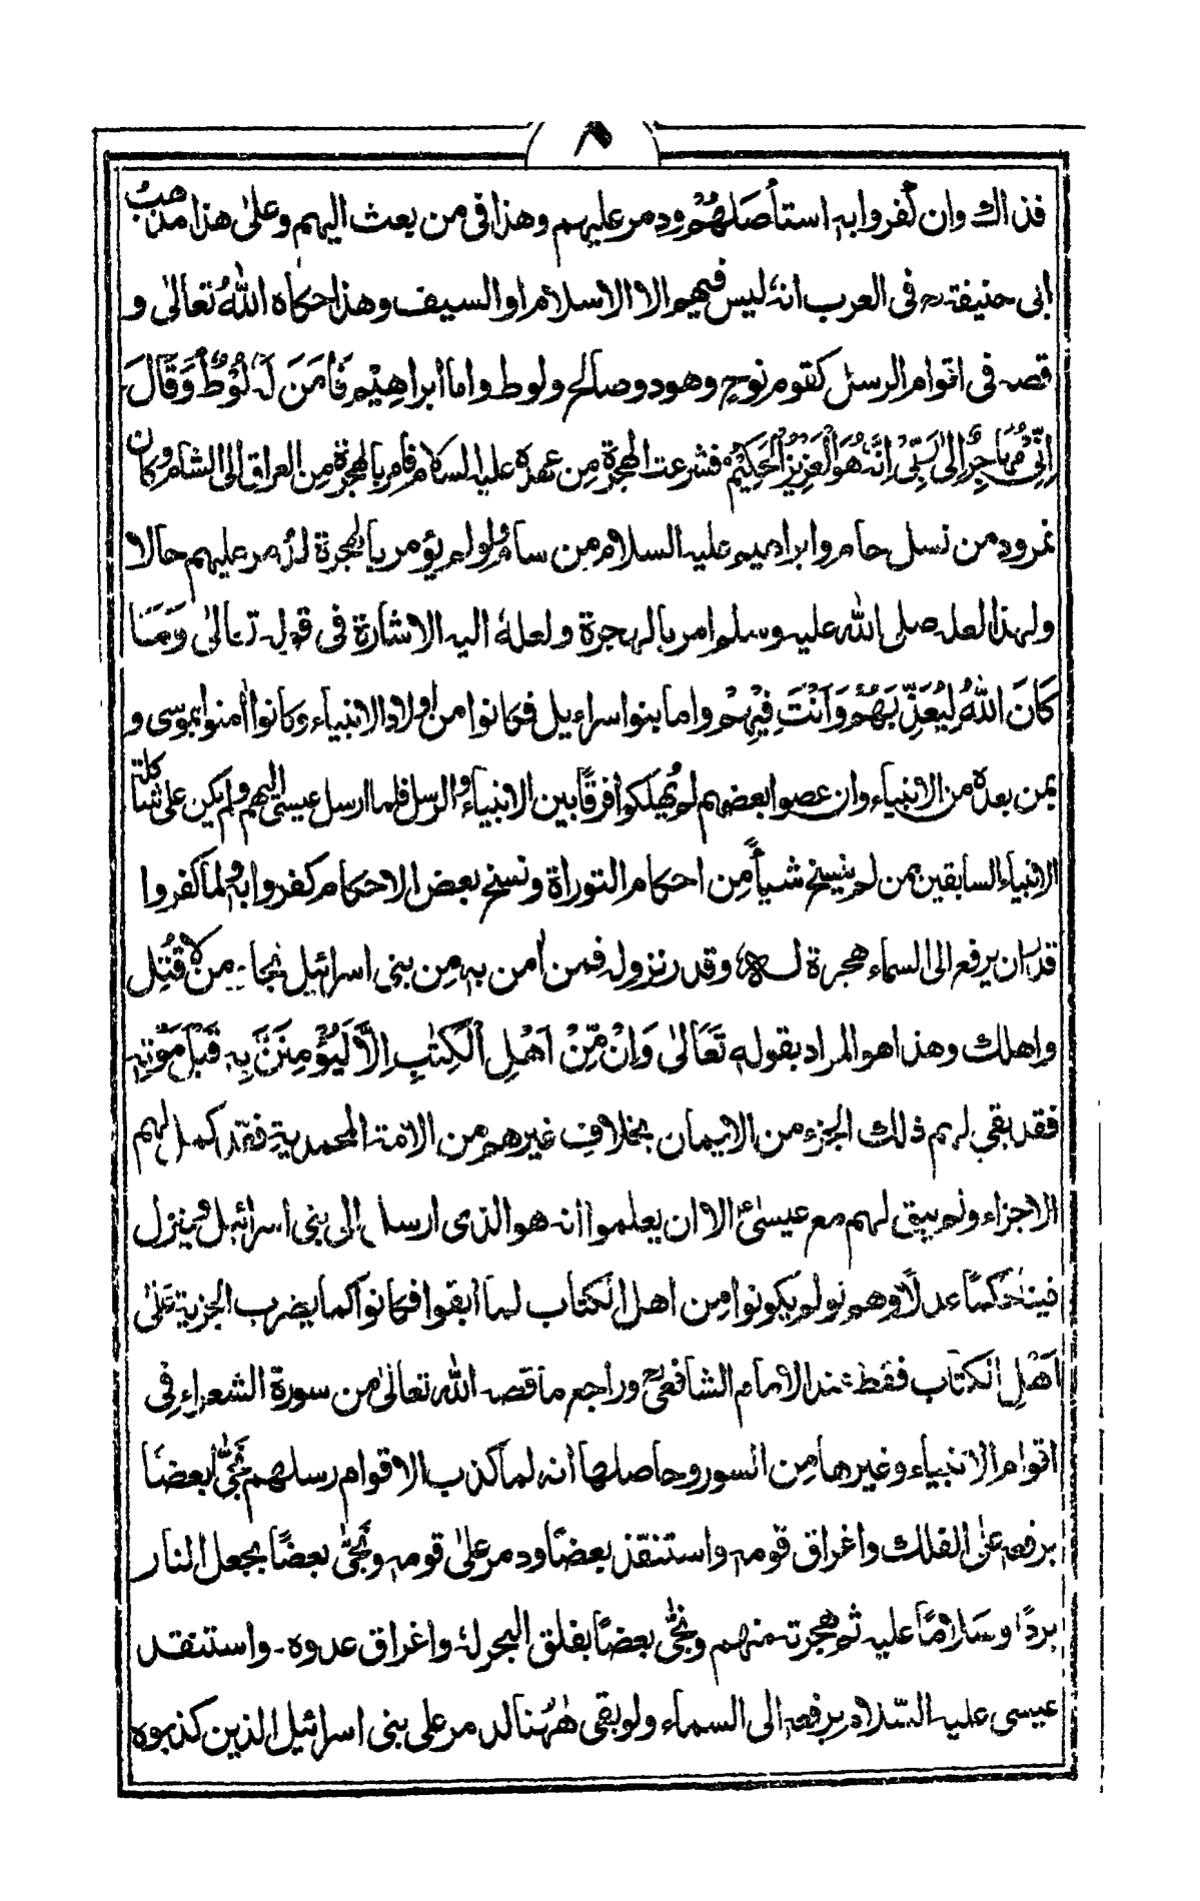 ٨
فذاك وان كفروا به استأصلهم ودمر عليهم وهذا فى من بعث اليهم وعلى هذا مذهب
ابى حنيفة رح فى العرب انه ليس فيهم الا الاسلام او السيف وهذا حكاه الله تعالى و
قصه فى اقوام الرسل كقوم نوح وهود وصالح ولوط واما ابراهيم فَاٰمَنَ لَهٗ لُوْطٌ وَقَالَ
اِنِّىْ مُهَاجِرٌ اِلٰى رَبِّىْ اِنَّهٗ هُوَ الْعَزِيْزُ الْحَكِيْمُ فشرعت الهجرة من عهده عليه السلام فامر بالهجرة من العراق الى الشام وكان
نمرود من نسل حام وابراهيم عليه السلام من سام ولو لم يؤمر بالهجرة لدمر عليهم حالا
ولهذا لعله صلى الله عليه وسلم امر بالهجرة ولعله اليه الاشارة فى قوله تعالى وَمَا
كَانَ اللهُ لِيُعَذِّبَهُمْ وَاَنْتَ فِيْهِمْ واما بنو اسرائيل فكانوا من اولاد الانبياء وكانوا اٰمنوا بموسى و
بمن بعده من الانبياء وان عصوا بعضهم لم يهلكوا فرقًا بين الانبياء والرسل فلما ارسل عيسى اليهم ولم يكن على شاكلة
الانبياء السابقين ممن لم ينسخ شيأً من احكام التوراة ونسخ بعض الاحكام كفروا به ولما كفروا
قدر ان يرفع الى السماء هجرة له وقدر نزوله فمن اٰمن به من بنى اسرائيل نجا ومن لا قُتِل
واهلك وهذا هو المراد بقوله تَعَالٰى وَاِنْ مِّنْ اَهْلِ الْكِتٰبِ اِلَّا لَيُؤْمِنَنَّ بِهٖ قَبْلَ مَوْتِهٖ
فقد بقى لهم ذلك الجزء من الايمان بخلاف غيرهم من الامة المحمدية فقد كمل لهم
الاجزاء ولم يبق لهم مع عيسىٰ الا ان يعلموا انه هو الذى ارسل الى بنى اسرائيل وينزل
فينا حكمًا عدلًا وهم لو لم يكونوا من اهل الكتاب لما ابقوا فكانوا كما يضرب الجزية على
اهل الكتاب فقط عند الامام الشافعى وراجع ما قصه الله تعالى من سورة الشعراء فى
اقوام الانبياء وغيرها من السور وحاصلها انه لما كذب الاقوام رسلهم نجّٰى بعضًا
برفعه على الفلك واغراق قومه واستنقذ بعضًا ودمر على قومه ونجّٰى بعضًا بجعل النار
بردًا وسلامًا عليه ثم هجرته منهم ونجّٰى بعضًا بفلق البحر له واغراق عدوه۔ واستنقد
عيسى عليه السّلام برفعه الى السماء ولو بقى هٰهنا لدمر على بنى اسرائيل الذين كذبوه